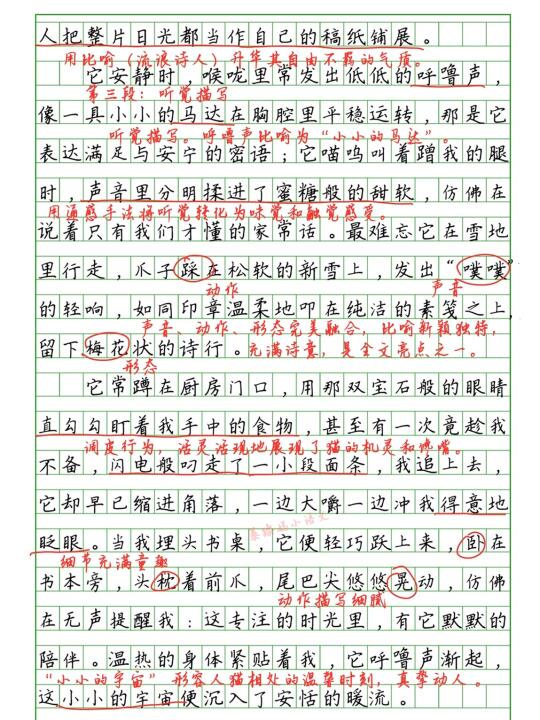 人把整片日光都当作自己的稿纸铺展。
用比喻（流浪诗人）升华其自由不羁的气质。
它安静时，喉咙里常发出低低的呼噜声，
第三段：听觉描写
像一具小小的马达在胸腔里平稳运转，那是它
听觉描写。呼噜声比喻为“小小的马达”。
表达满足与安宁的密语；它喵呜叫着蹭我的腿
时，声音里分明揉进了蜜糖般的甜软，仿佛在
用通感手法将听觉转化为味觉和触觉感受。
说着只有我们才懂的家常话。最难忘它在雪地
里行走，爪子踩在松软的新雪上，发出“噗噗”
动作 声音
的轻响，如同印章温柔地叩在纯洁的素笺之上，
声音、动作、形态完美融合，比喻新颖独特，
留下梅花状的诗行。充满诗意，是全文亮点之一。
形态
它常蹲在厨房门口，用那双宝石般的眼睛
直勾勾盯着我手中的食物，甚至有一次竟趁我
调皮行为，活灵活现地展现了猫的机灵和馋嘴。
不备，闪电般叼走了一小段面条，我追上去，
它却早已缩进角落，一边大嚼一边冲我得意地
眨眼。当我埋头书桌，它便轻巧跃上来，卧在
细节充满童趣
书本旁，头枕着前爪，尾巴尖悠悠晃动，仿佛
动作描写细腻
在无声提醒我：这专注的时光里，有它默默的
陪伴。温热的身体紧贴着我，它呼噜声渐起，
“小小的宇宙”形容人猫相处的温馨时刻，真挚动人。
这小小的宇宙便沉入了安恬的暖流。